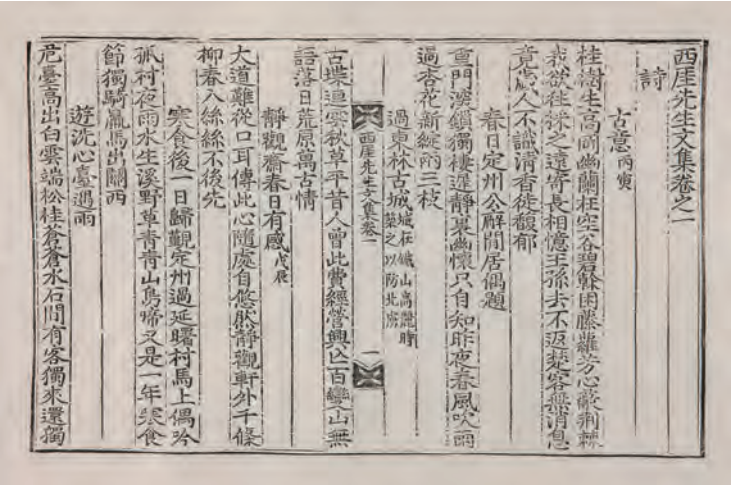 西厓先生文集卷之一
詩
古意丙寅
桂樹生高岡幽蘭在空谷碧榦困藤蘿芳心蔽荆棘
我欲往採之遠寄長相憶王孫去不返楚客無消息
竟歲人不識清香徒馥郁
春日定州公廨閒居偶題
重門深鎖獨棲遲靜裏幽懷只自知昨夜春風吹雨
過杏花新綻兩三枝
過東林古城城在 山高麗時築之以防北虜
西厓先生文集卷一 一
古堞連雲秋草平昔人曾此費經營興亡百變山無
語落日荒原萬古情
靜觀齋春日有感戊辰
大道難從口耳傳此心隨處自悠然靜觀軒外千條
柳春入絲絲不後先
寒食後一日歸覲定州過延曙村馬上偶吟
孤村夜雨水生溪野草靑靑山鳥啼又是一年寒食
節獨騎羸馬出關西
遊洗心臺遇雨
危臺高出白雲端松桂蒼蒼水石間有客獨來還獨